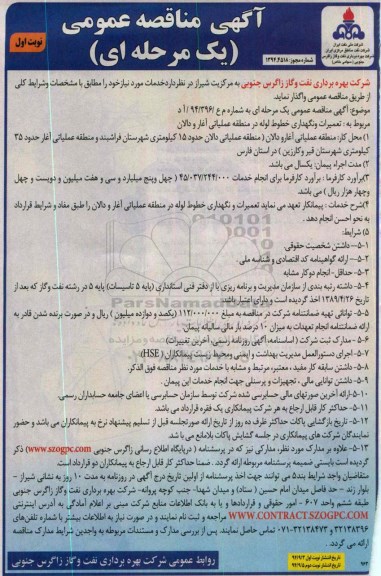 آگهی مناقصه عمومی
(یک مرحله ای)
نوبت اول
شرکت ملی نفت ایران
شرکت نفت مناطق مرکزی ایران
شماره مجوز: ۱۳۹۴.۳۵۱۸
شرکت بهره برداری نفت وگاز زاگرس جنوبی به مرکزیت شیراز در نظردارد خدمات مورد نیاز خود را مطابق با مشخصات وشرایط کلی
از طریق مناقصه عمومی واگذار نماید.
موضوع: آگهی مناقصه عمومی یک مرحله ای به شماره م ع /۹۴/۳۹۶ آ د
مربوط به: تعمیرات ونگهداری خطوط لوله در منطقه عملیاتی آغار و دالان
۱) محل کار: منطقه عملیاتی آغارو دالان ( منطقه عملیاتی دالان حدود ۱۵ کیلومتری شهرستان فراشبند و منطقه عملیاتی آغار حدود ۳۵
کیلومتری شهرستان قیر وکارزین ) در استان فارس
۲) مدت اجراء پیمان: یکسال می باشد.
۳)برآورد کارفرما : برآورد کارفرما برای انجام خدمات ۴۵/۰۳۷/۲۴۴/۰۰۰ ( چهل وپنج میلیارد و سی و هفت میلیون و دویست و چهل
وچهار هزار ریال ) می باشد.
۴)شرح خدمات : پیمانکار تعهد می نماید تعمیرات و نگهداری خطوط لوله در منطقه عملیاتی آغار و دالان را طبق مفاد و شرایط قرارداد
به نحو احسن انجام دهد .
۵) شرایط:
۵-۱- داشتن شخصیت حقوقی.
۵-۲- ارائه گواهینامه کد اقتصادی و شناسه ملی .
۵-۳- حداقل - انجام دوکار مشابه
۵-۴- داشته رتبه بندی از سازمان مدیریت و برنامه ریزی یا از دفتر فنی استانداری (پایه ۵ تاسیسات) پایه ۵ در رشته نفت وگاز که بعد از
تاریخ ۱۳۸۹/۴/۲۶ اخذ گردیده است و دارای اعتبار باشد.
۵-۵- توانائی تهیه ضمانتنامه شرکت در مناقصه به مبلغ ۱۱۲/۰۰۰/۰۰۰ (یکصد و دوازده میلیون ) ریال و در صورت برنده شدن قادر به
ارائه ضمانتنامه انجام تعهدات به میزان ۱۰ درصد بار مالی سالیانه پیمان.
۵-۶- مدارک ثبت شرکت ( اساسنامه، آگهی روزنامه رسمی، آخرین تغییرات)
۵-۷- اجرای دستورالعمل مدیریت بهداشت و ایمنی ومحیط زیست پیمانکاران ( HSE)
۵-۸- داشتن سابقه کار مفید ، معتبر، مرتبط و مشابه با خدمات مورد نظر مناقصه فوق الذکر.
۵-۹- داشتن توانایی مالی ، تجهیزات و پرسنلی جهت انجام خدمات این پیمان .
۵-۱۰- ارائه آخرین صورتهای مالی حسابرسی شده شرکت توسط سازمان حسابرسی یا اعضای جامعه حسابداران رسمی.
۵-۱۱- حداکثر کار قابل ارجاع به هر شرکت پیمانکاری یک فقره قرارداد می باشد.
۵-۱۲- تاریخ بازگشایی پاکات حداکثر ظرف ده روز از تاریخ ارائه صورتجلسه قبل از تسلیم پیشنهاد نرخ به پیمانکاران می باشد و حضور
نمایندگان شرکت های پیمانکاری در جلسه گشایش پاکات بلامانع می باشد.
۵-۱۳- علاوه بر مدارک مورد نظر، مدارکی نیز که در پرسشنامه ( درپایگاه اطلاع رسانی زاگرس جنوبی www.szogpc.com) ذکر
گردیده است بایستی ضمیمه پرسشنامه مربوطه ارائه گردد . ضمنا حداکثر کار قابل ارجاع به پیمانکاران دو قرارداد است .
متقاضیان واجد شرایط بندی می توانند جهت اخذ پرسشنامه از اولین تاریخ درج آگهی در روزنامه به مدت ۱۰ روز به نشانی شیراز -
بلوار زند - حد فاصل میدان امام حسین ( ستاد) و میدان شهدا- جنب کوچه پروانه- شرکت بهره برداری نفت وگاز زاگرس جنوبی
طبقه ششم واحد ۶۰۷ - امور حقوقی و قراردادها و یا به بانک اطلاعات منابع شرکت مبنی بر اعلام آمادگی به آدرس اینترنتی
WWW.CONTRACT.SZOGPC.COM مراجعه و ثبت نام نمایند و در صورت نیاز به اطلاعات بیشتر با شماره تلفن های
۳۲۱۴۸۳۹۶ و ۳۲۱۳۸۴۷۳-۰۷۱ تماس حاصل نمایند. پس از بررسی مدارک و مستندات مربوطه به واجدین شرایط مدارک مناقصه
ارائه می گردد.
روابط عمومی شرکت بهره برداری نفت وگاز زاگرس جنوبی